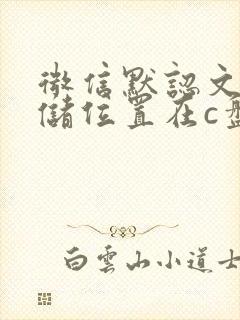 微信默認文
儲位置在c盤
白雲山小道士